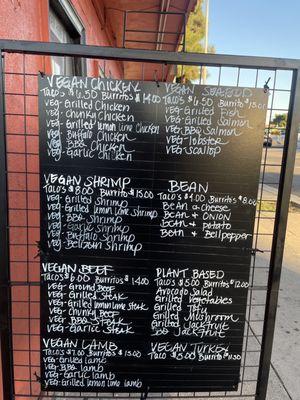 VEGAN CHICKEN
TACO'S 6.50 Burritos 14.00
VEG-Grilled Chicken
VEG-Chunky Chicken
VEG-Grilled lemon lime Chicken
VEG-Buffalo Chicken
VEG-BBQ Chicken
VEG-Garlic Chicken
VEGAN SEAFOOD
TACO'S 6.50 Burrito's 15.00
Veg-Grilled Fish
Veg-Grilled Salmon
Veg-BBQ Salmon
Veg-Lobster
Veg-Scallop
VEGAN SHRIMP
TACO'S 8.00 Burrito's 15.00
VEG-Grilled Shrimp
VEG-Grilled lemon lime Shrimp
VEG-BBQ Shrimp
VEG-Garlic Shrimp
VEG-Buffalo Shrimp
VEG-Bellpepper Shrimp
BEAN
TACO'S 4.00 Burrito's 8.00
Bean & Cheese
Bean & Onion
Bean & Potato
Bean & Bellpepper
VEGAN BEEF
TACO'S 6.00 Burrito's 14.00
VEG-Ground Beef
VEG-Grilled Steak
VEG-Grilled lemon lime Steak
VEG-Chunky Beef
VEG-BBQ Steak
VEG-Garlic Steak
PLANT BASED
TACO'S 5.00 Burrito's 12.00
Avocado Salad
Grilled Vegetables
Grilled Tofu
Grilled Mushroom
Grilled Jackfruit
BBQ Jackfruit
VEGAN LAMB
TACO'S 7.00 Burrito's 15.00
VEG-Grilled lamb
VEG-BBQ lamb
VEG-Garlic lamb
VEG-Grilled lemon lime lamb
VEGAN TURKEY
TACO 5.00 Burrito's